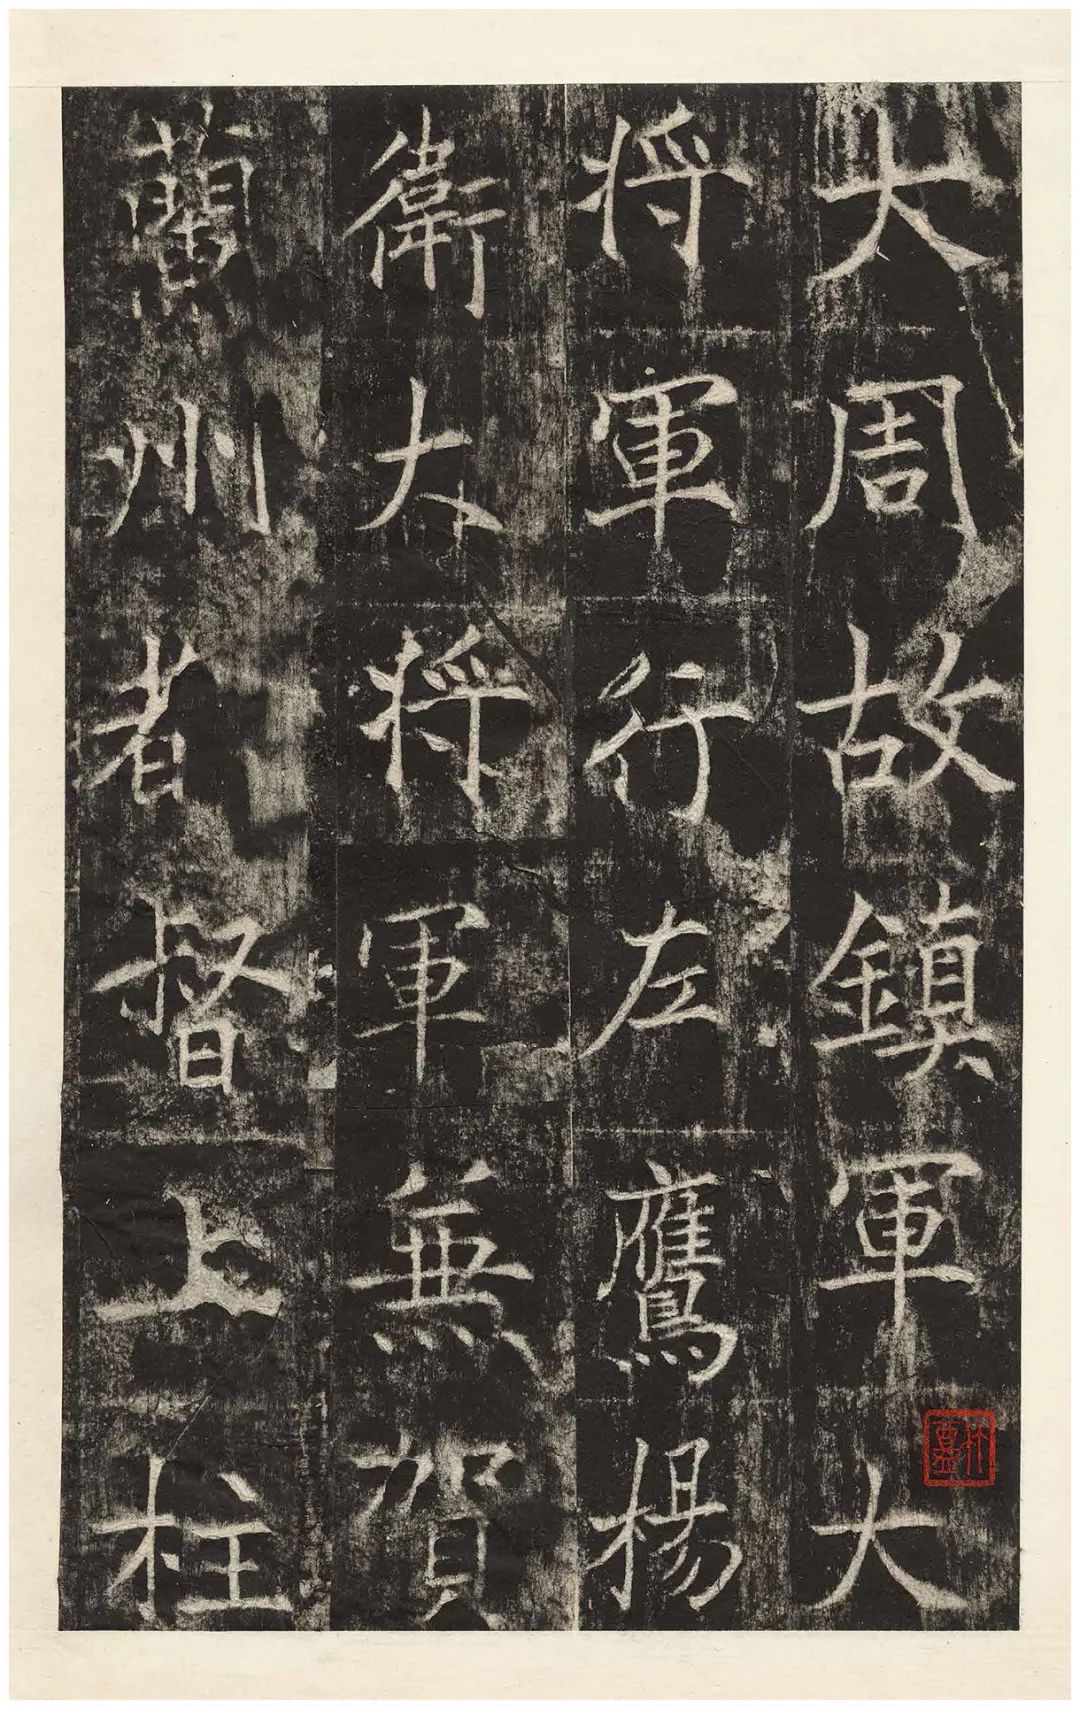 大周故鎮軍大
将軍行左鷹楊
衛大将軍兼賀
蘭州都督上柱